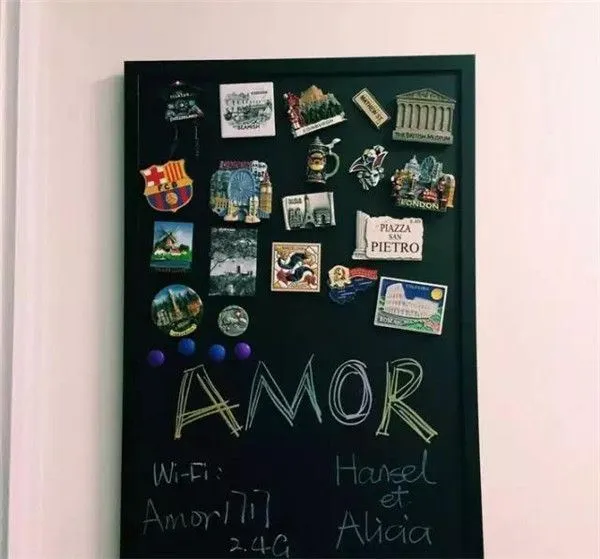 BEAMISH
EDINBURGH
MATHEW ST
THE BRITISH MUSEUM
FCB
LONDON
PIAZZA
SAN
PIETRO
AMOR
Wi-Fi:
Amor1717
2.4G
Hansel
et
Alicia